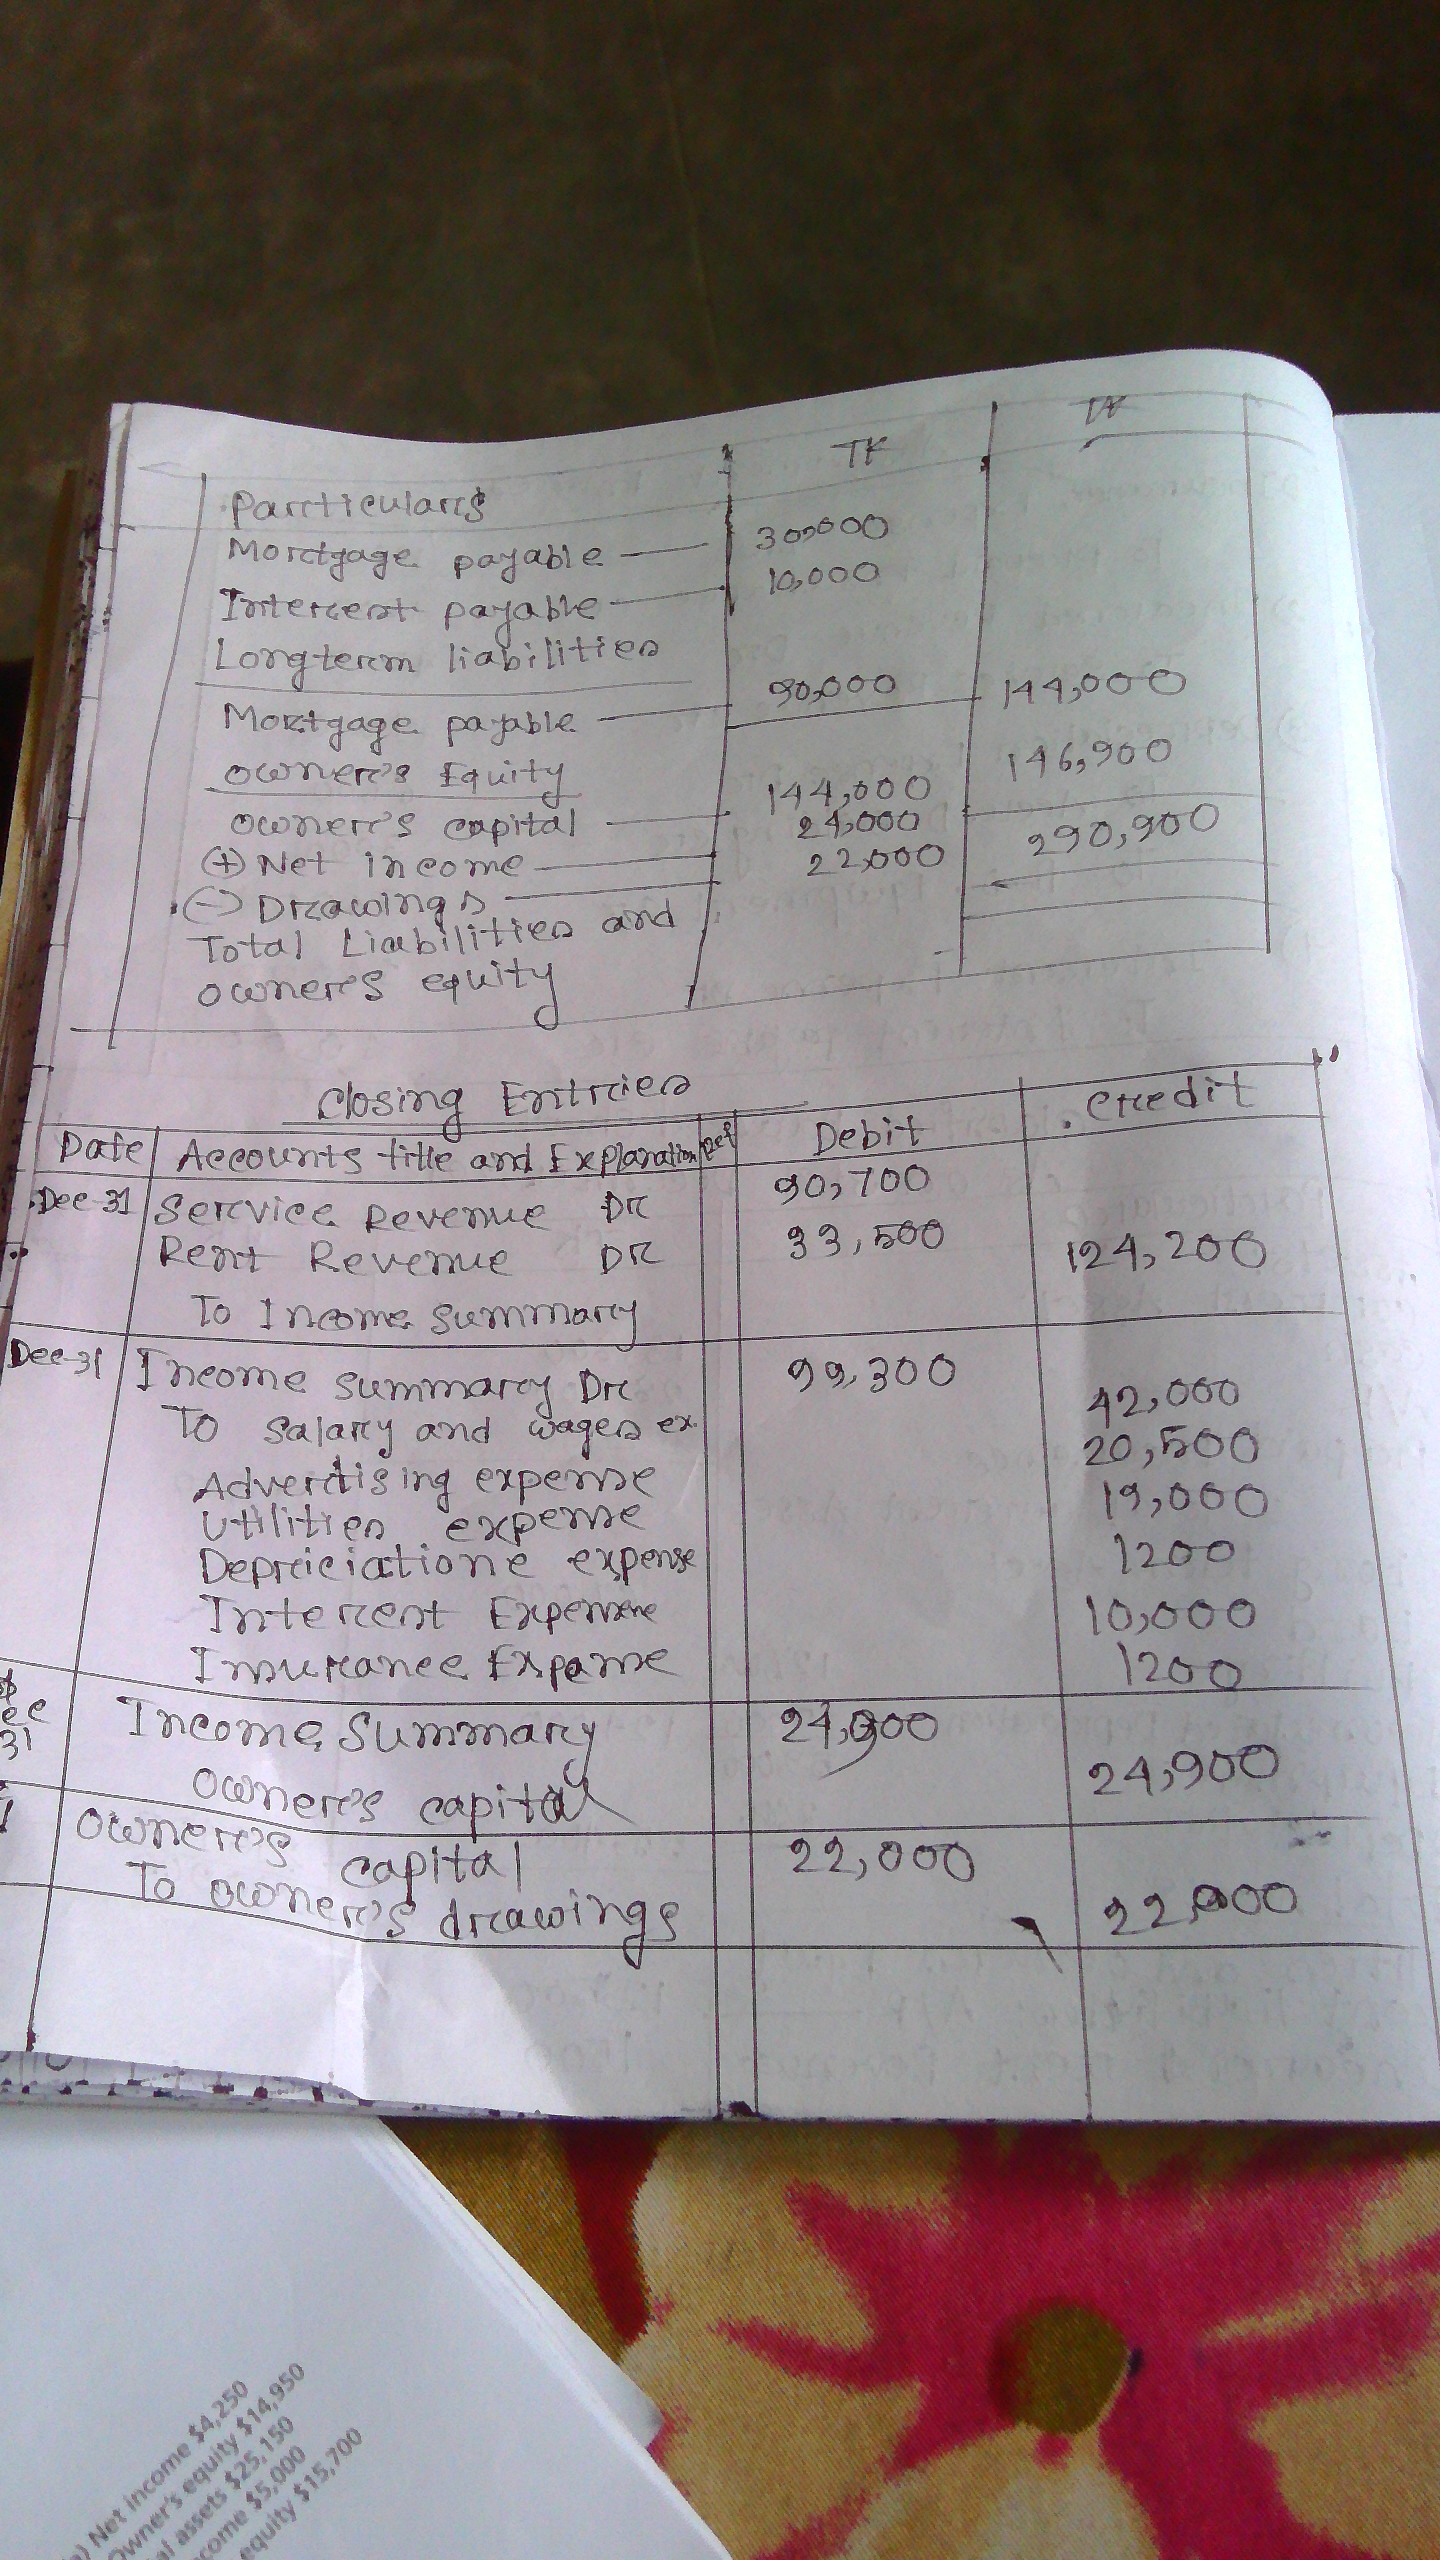 TK TK
Particulars
Mortgage payable — 30,000
Interest payable — 10,000
Longterm liabilities
Mortgage payable — 90,000 144,000
Owner's Equity 146,900
Owner's capital — 144,000
(+) Net income — 24,000 290,900
(-) Drawings — 22,000
Total Liabilities and
Owner's equity
Closing Entries
Date Accounts title and Explanation Ref Debit Credit
Dec-31 Service Revenue Dr 90,700
Rent Revenue Dr 33,500
To Income Summary 124,200
Dec-31 Income summary Dr 99,300
To salary and wages ex. 42,000
Advertising expense 20,500
Utilities expense 19,000
Depriciatione expense 1200
Interest Expense 10,000
Insurance Expense 1200
Dec 31 Income Summary 24,900
Owner's capital 24,900
Owner's capital 22,000
To owner's drawings 22,000
) Net income $4,250
Owner's equity $14,950
al assets $25,150
come $5,000
equity $15,700